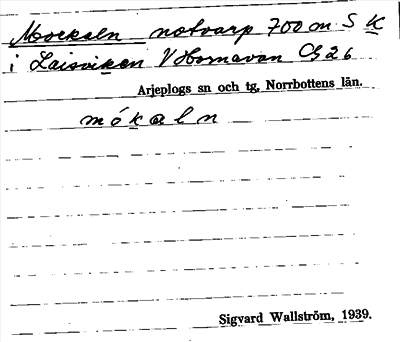 Mockeln notvarp 700 m S K
i Laisviken V Hornavan Cg 26
Arjeplogs sn och tg, Norrbottens län.
mókaln
Sigvard Wallström, 1939.